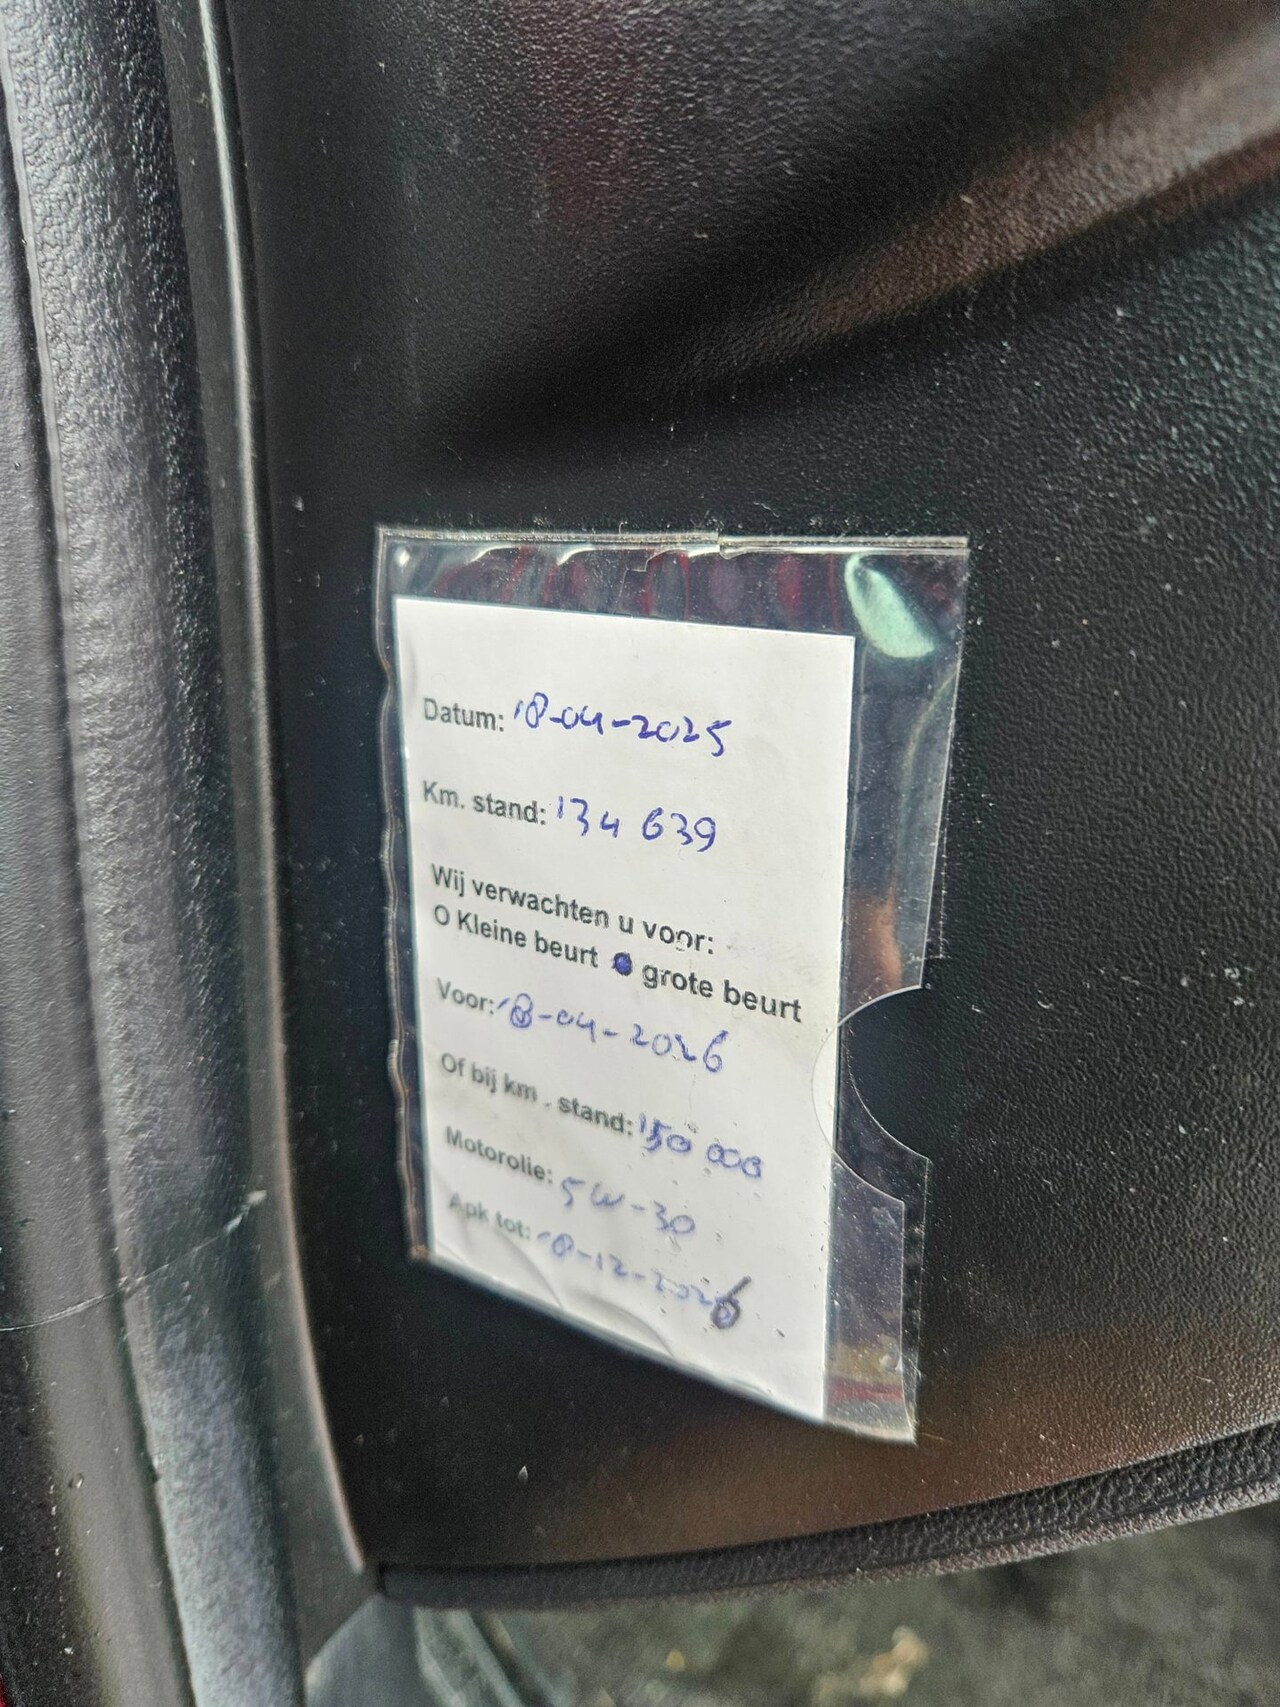 Datum: 18-04-2025
Km. stand: 134 639
Wij verwachten u voor:
O Kleine beurt ● grote beurt
Voor: 18-04-2026
Of bij km . stand: 150 000
Motorolie: 5W-30
Apk tot: 18-12-2026